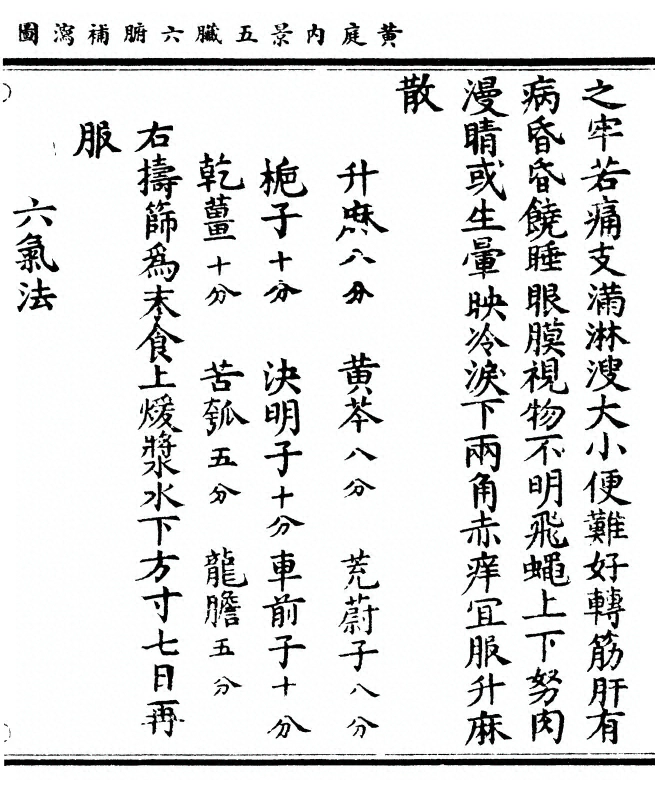 黄庭内景五臟六腑補瀉圖
之牢若痛支滿淋溲大小便難好轉筋肝有
病昏昏饒睡眼膜視物不明飛蠅上下努肉
漫睛或生暈映冷淚下兩角赤痒冝服升麻
散
升麻八分 黄芩八分 茺蔚子八分
梔子十分 決明子十分 車前子十分
乾薑十分 苦瓠五分 龍膽五分
右擣篩爲末食上煖漿水下方寸七日再
服
六氣法